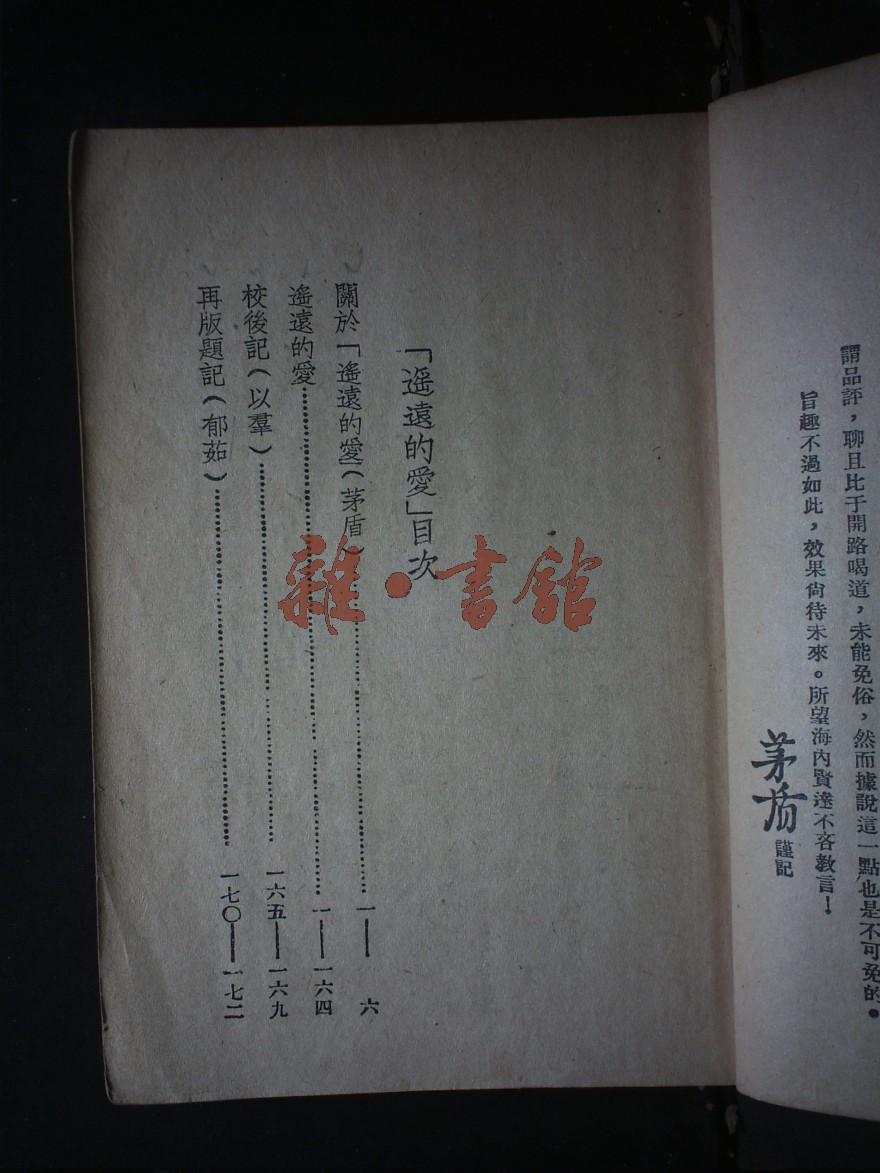 謂品評，聊且比于開路喝道，未能免俗，然而據說這一點也是不可免的。
旨趣不過如此，效果尙待未來。所望海內賢達不吝敎言！
茅盾謹記
「遙遠的愛」目次
關於「遙遠的愛」（茅盾）……一——六
遙遠的愛……一——一六四
校後記（以羣）……一六五——一六九
再版題記（郁茹）……一七〇——一七二
雜·書館